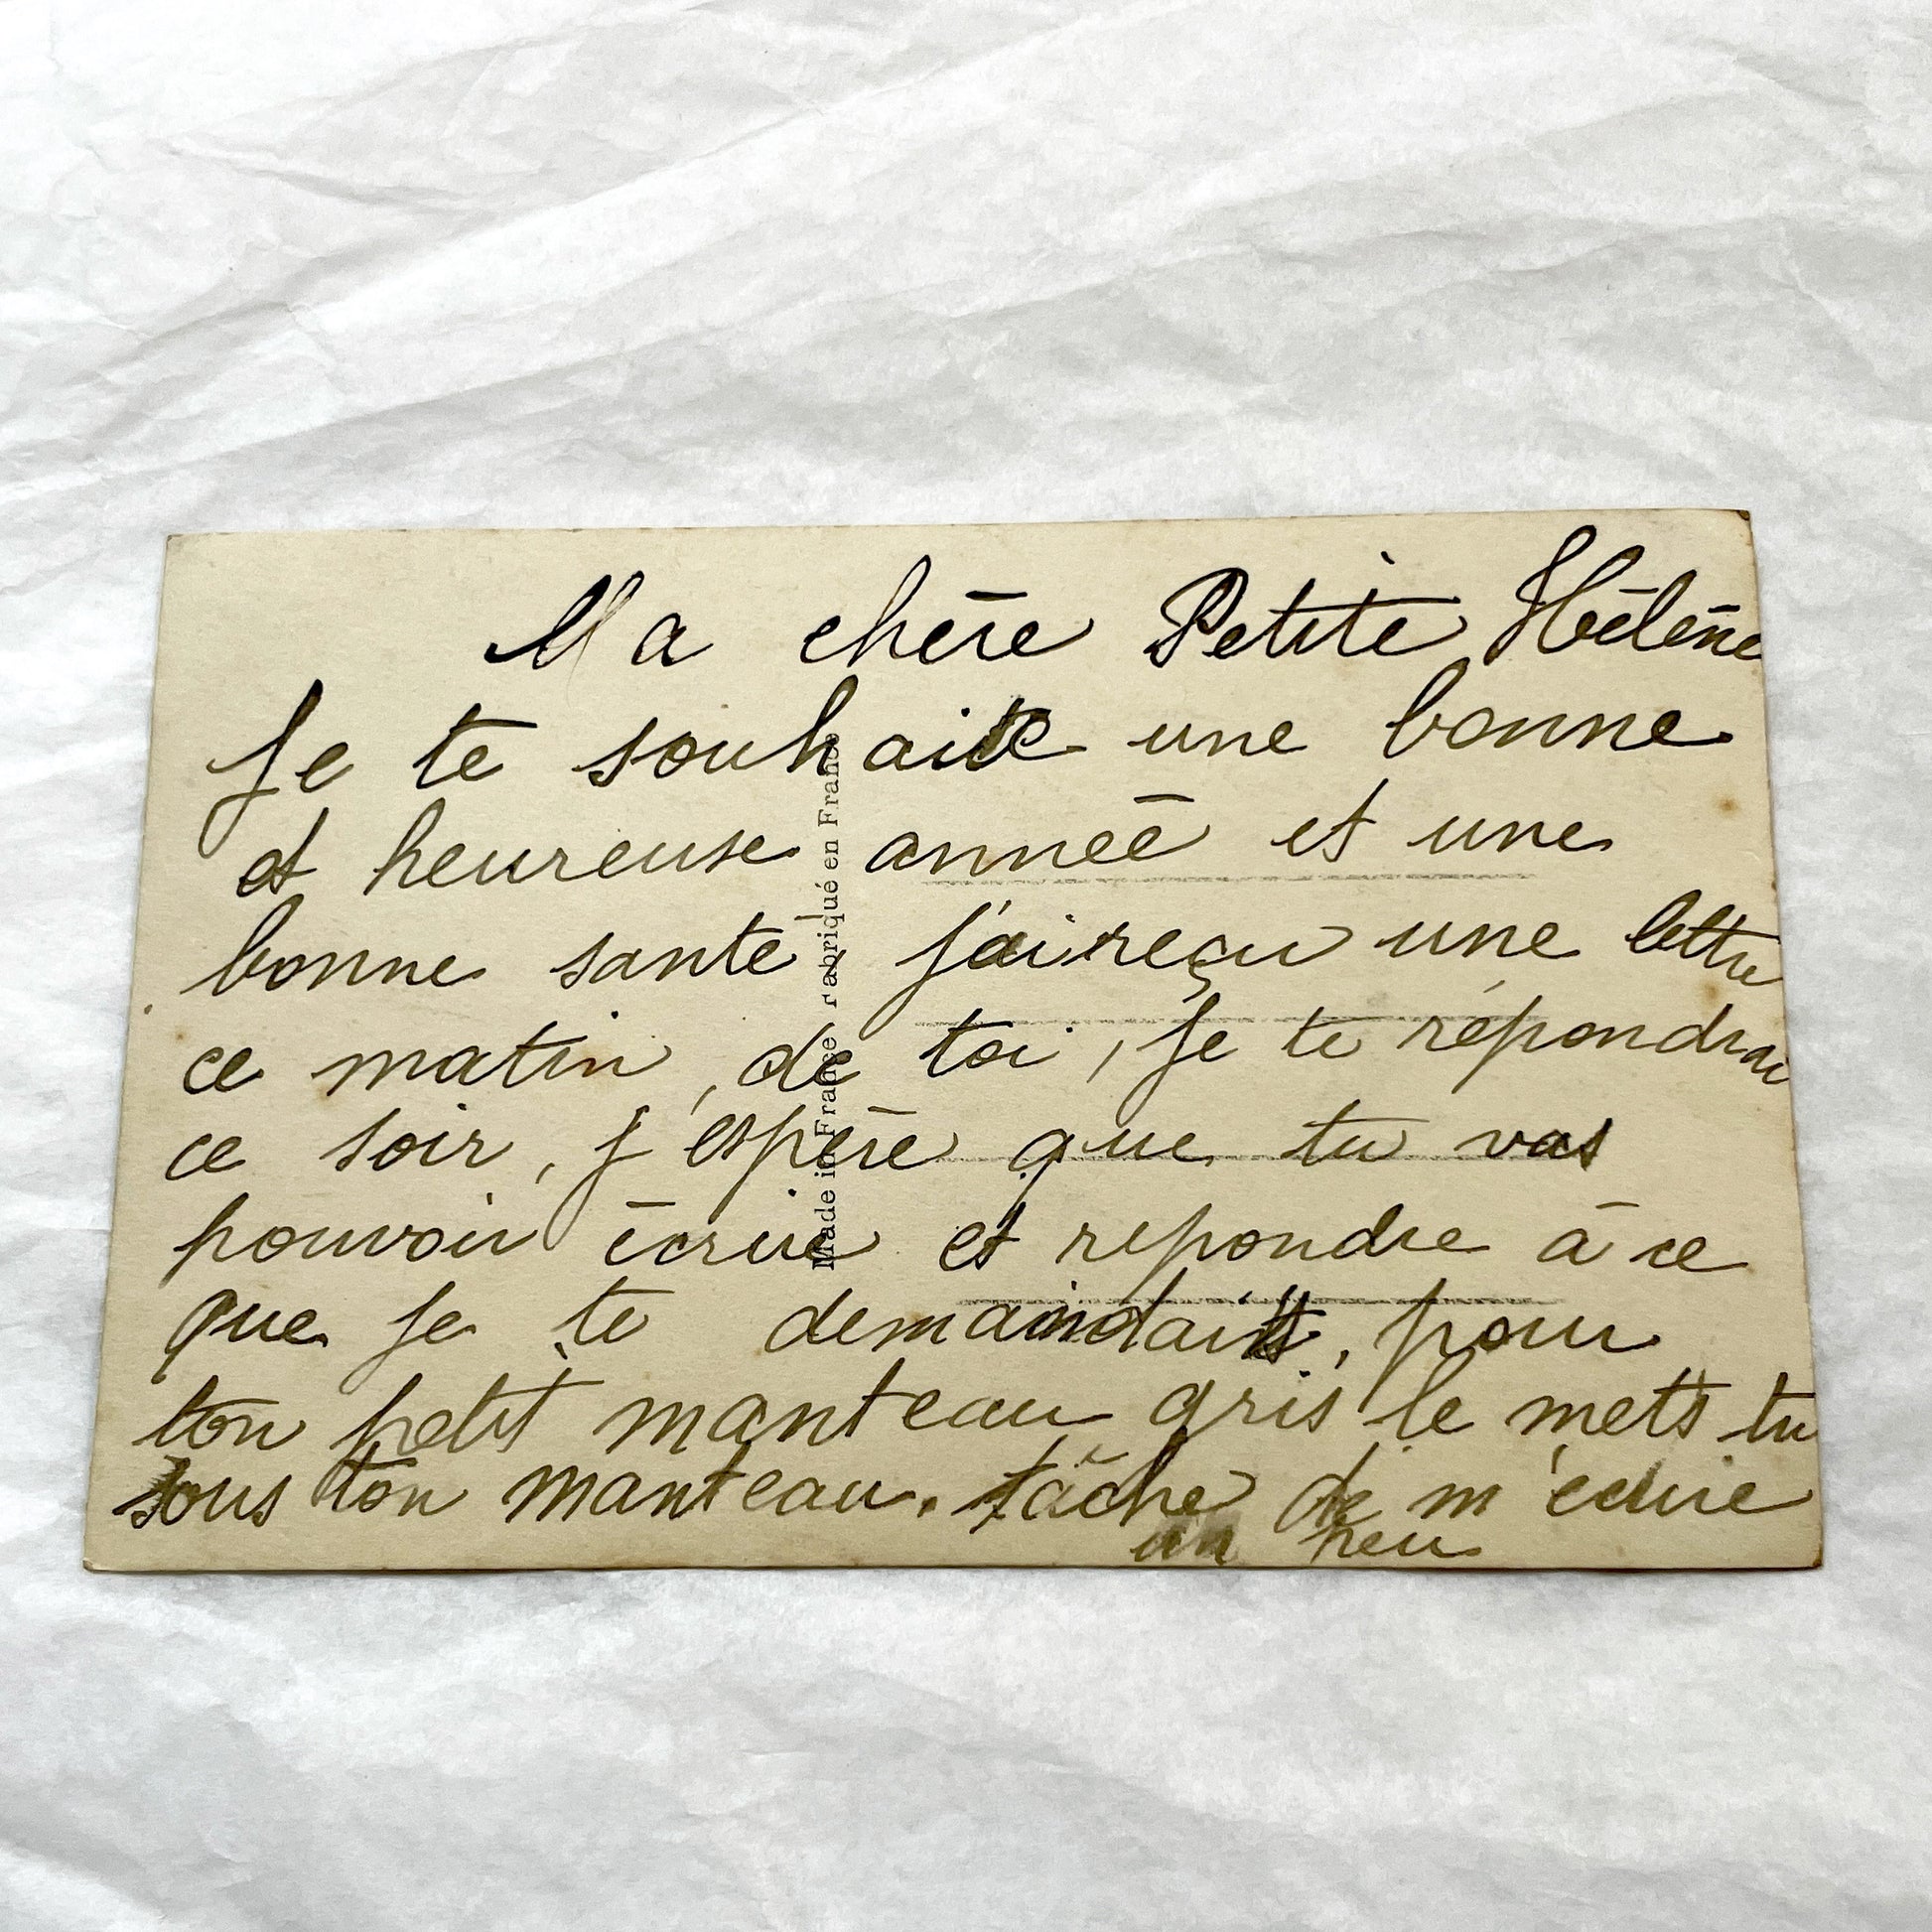 Ma chère Petite Hélène
Je te souhaite une bonne
et heureuse année et une
bonne santé, j'ai reçu une lettre
ce matin, de toi, je te répondrai
ce soir, j'espère que tu vas
pouvoir écrire et repondre à ce
que je te demandais, pour
ton petit manteau gris le mets tu
sous ton manteau. tâche de m'ecrire
un peu
Made in France Fabriqué en France